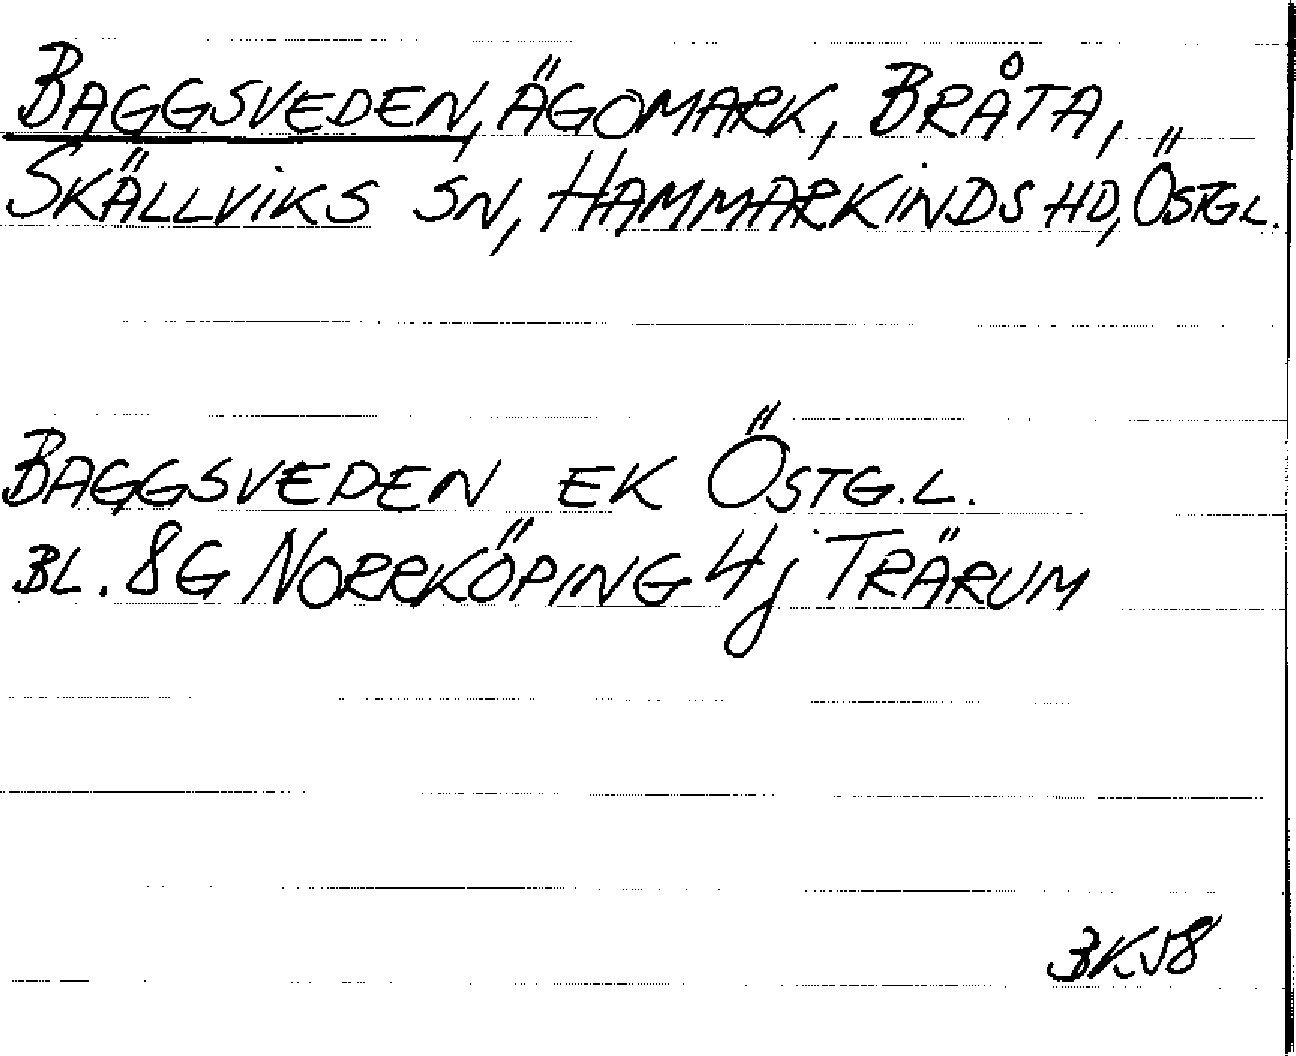 BAGGSVEDEN, ÄGOMARK, BRÅTA,
SKÄLLVIKS SN, HAMMARKINDS HD, ÖSTGL.
BAGGSVEDEN EK ÖSTG.L.
BL. 8G NORRKÖPING 4j TRÄRUM